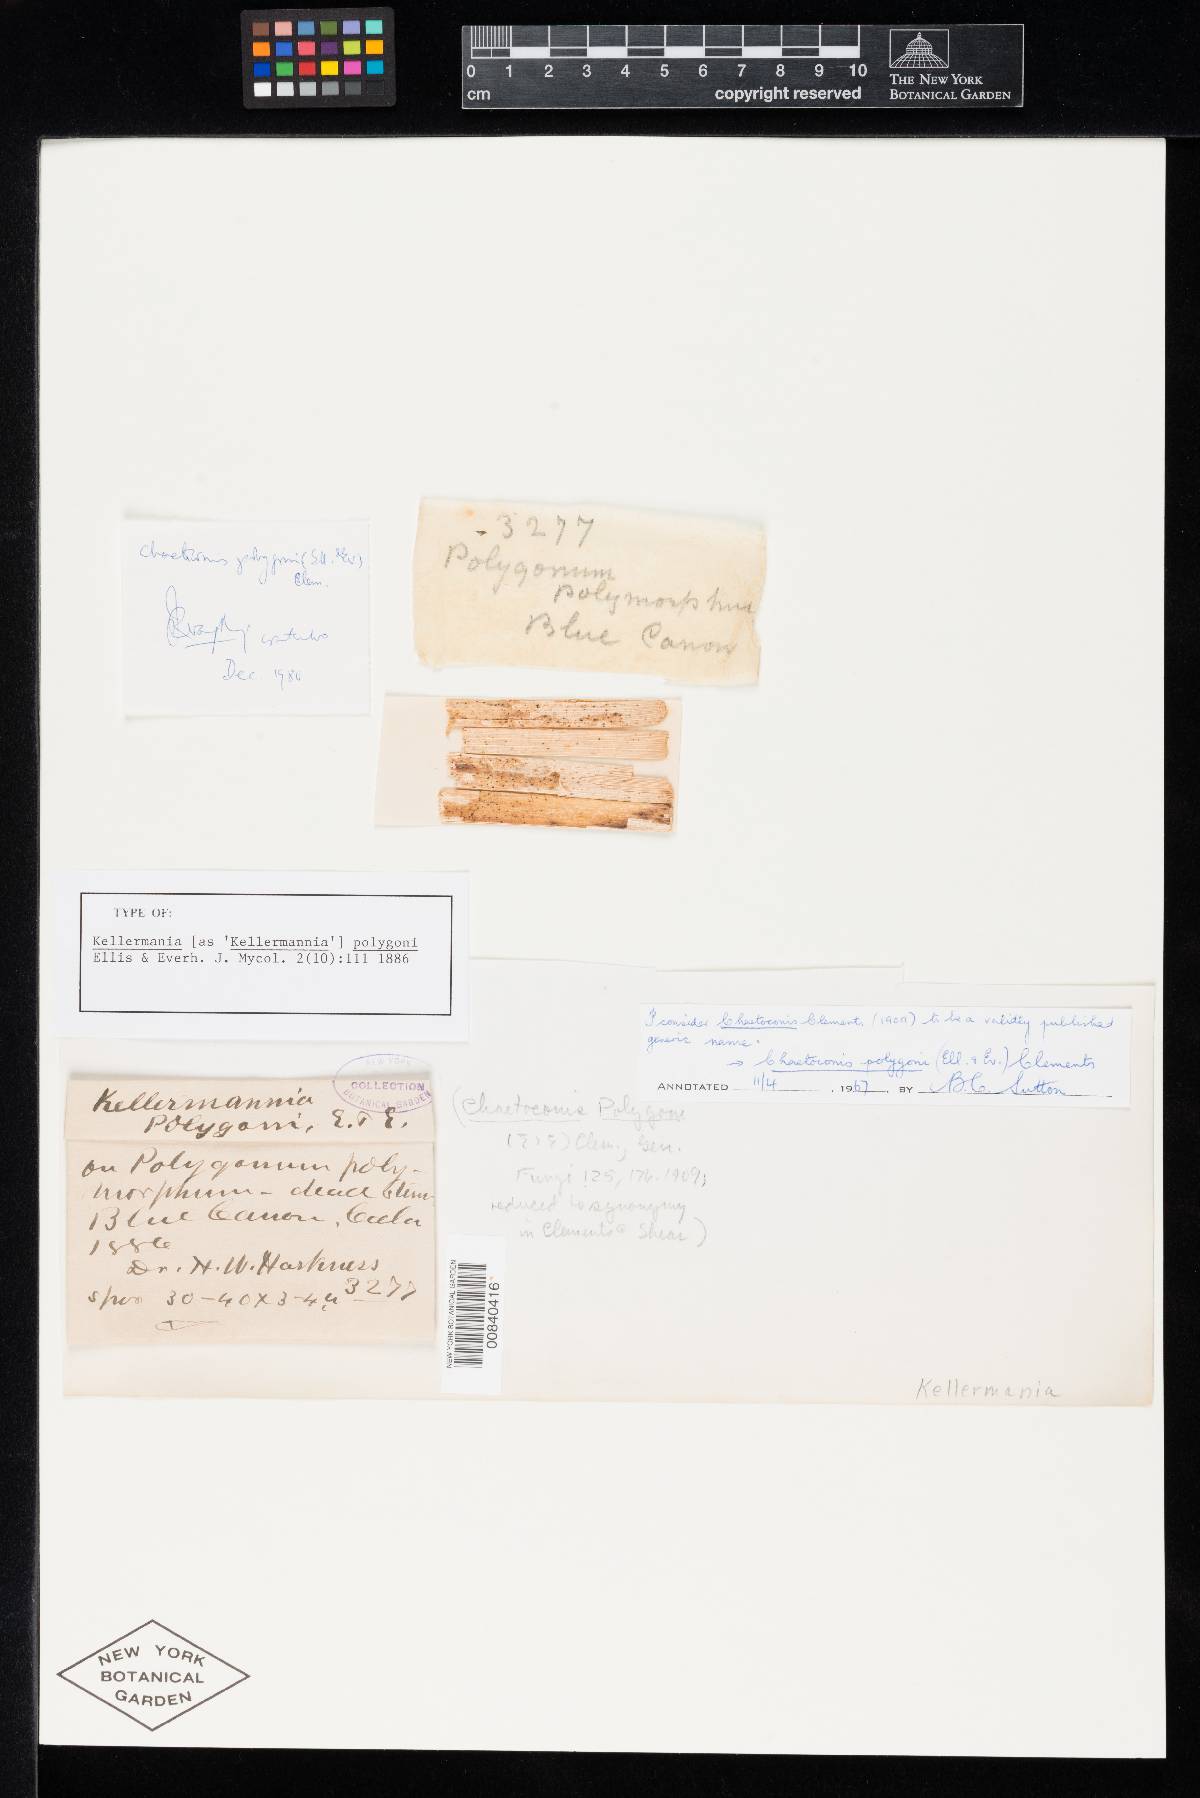 0 1 2 3 4 5 6 7 8 9 10
cm
copyright reserved
THE NEW YORK
BOTANICAL GARDEN
Chaetoconis polygoni (Ell. & Ev.)
Clem.
Dec. 1980
3277
Polygonum
Polymorphum
Blue Canon
TYPE OF:
Kellermania [as 'Kellermannia'] polygoni
Ellis & Everh. J. Mycol. 2(10):111 1886
I consider Chaetoconis Clements (1909) to be a validly published
generic name.
→ Chaetoconis polygoni (Ell. & Ev.) Clements
ANNOTATED 11/4 . 1967 . BY B.C. Sutton
NEW YORK
COLLECTION
BOTANICAL GARDEN
Kellermannia
Polygoni, E. & E.
on Polygonum poly-
morphum - dead stem
Blue Canon, Cala
1886
Dr. H. W. Harkness
spor 30-40x3-4µ 3277
(Chaetoconis Polygoni
(E & E) Clem., Gen.
Fungi 125, 176. 1909;
reduced to synonymy
in Clements & Shear)
NEW YORK BOTANICAL GARDEN
00840416
Kellermania
NEW YORK
BOTANICAL
GARDEN